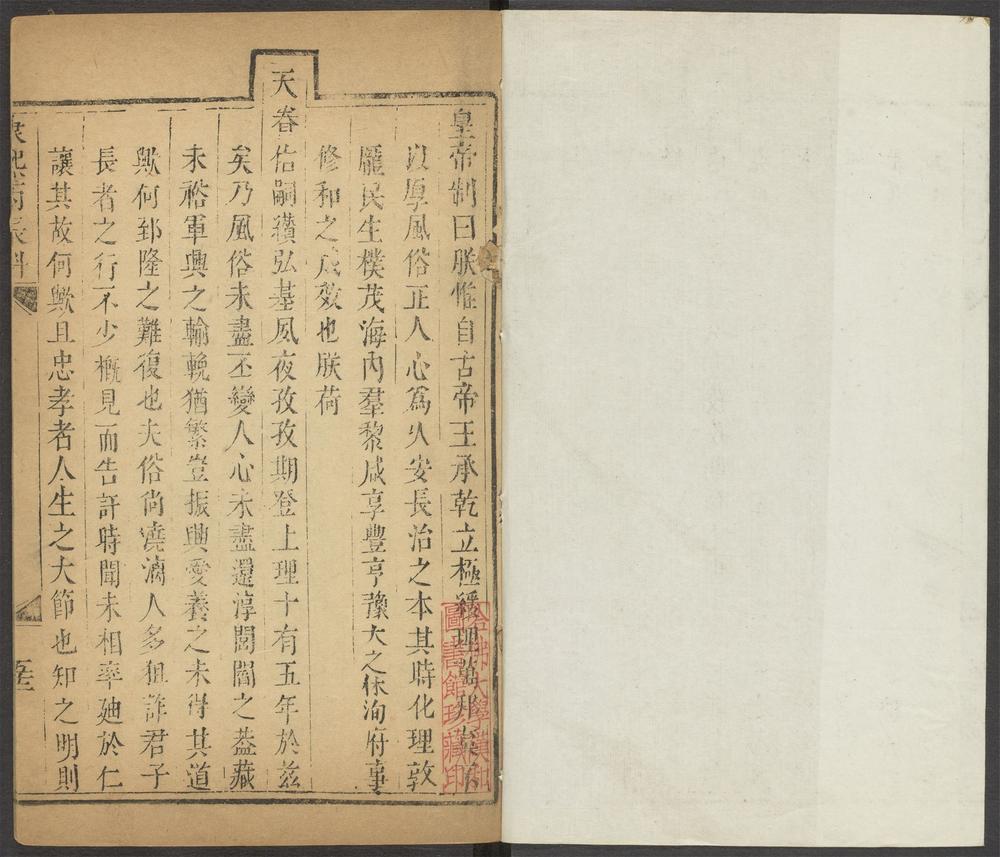 皇帝制曰朕惟自古帝王承乾立極綏理萬
以厚風俗正人心為久安長治之本其時化理敦
龐民生樸茂海內羣黎咸享豐亨豫大之休洵府事
修和之成效也朕荷
天眷佑嗣纘弘基夙夜孜孜期登上理十有五年於茲
矣乃風俗未盡丕變人心未盡還淳閭閻之葢藏
未裕軍興之輸輓猶繁豈振興愛養之未得其道
歟何郅隆之難復也夫俗尚澆漓人多狙詐君子
長者之行不少概見而告訐時聞未相率廸於仁
讓其故何歟且忠孝者人生之大節也知之明則
哈佛大學漢和
圖書館珍藏印